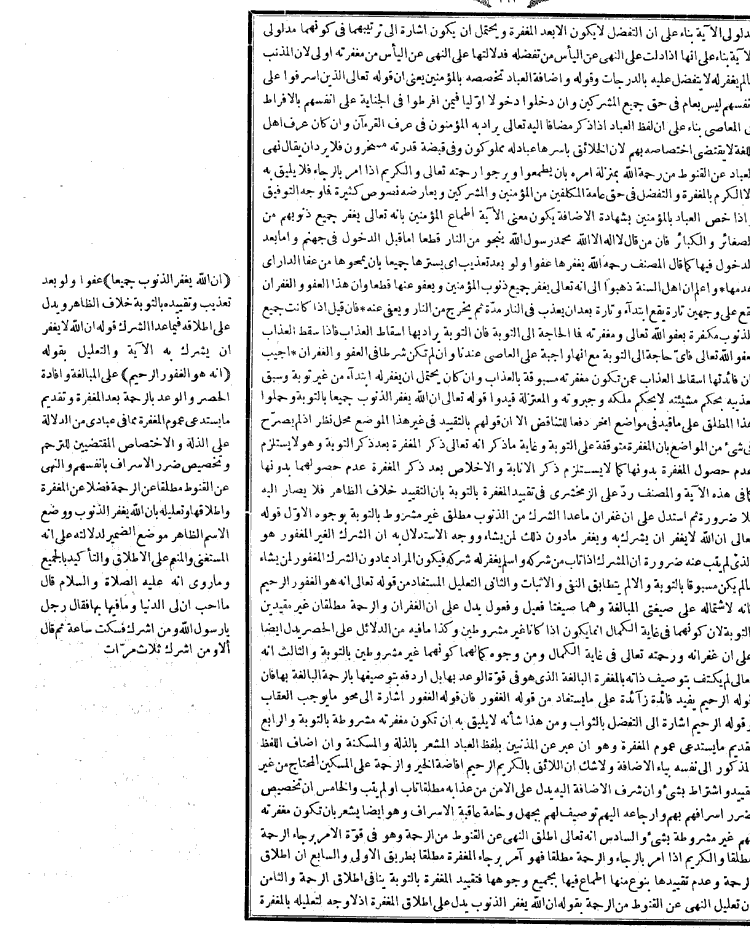 مدلولى الآية بناء على ان التفضل لايكون الابعد المغفرة ويحتمل ان يكون اشارة الى ترتيبهما فى كونهما مدلولى
لآية بناء على انها اذا دلت على النهى عن اليأس من تفضله فدلالتها على النهى عن اليأس من مغفرته اولى لان المذنب
مالم يغفر له لا يتفضل عليه بالدرجات وقوله واضافة العباد تخصصه بالمؤمنين يعنى ان قوله تعالى الذين اسرفوا على
نفسهم ليس بعام فى حق جميع المشركين وان دخلوا دخولا اوليا فيمن افرطوا فى الجناية على انفسهم بالافراط
فى المعاصى بناء على ان لفظ العباد اذا ذكر مضافا اليه تعالى يراد به المؤمنون فى عرف القرءآن وان كان عرف اهل
للغة لا يقتضى اختصاصه بهم لان الخلائق باسرها عباد له مملوكون وفى قبضة قدرته مسخرون فلا يرد ان يقال نهى
لعباد عن القنوط من رحمة الله بمنزلة امره بان يطمعوا ويرجوا رحمته تعالى والكريم اذا امر بالرجاء فلا يليق به
الا الكرم بالمغفرة والتفضل فى حق عامة المكلفين من المؤمنين والمشركين ويعارضه نصوص كثيرة فاوجه التوفيق
واذا خص العباد بالمؤمنين بشهادة الاضافة يكون معنى الآية اطماع المؤمنين بانه تعالى يغفر جميع ذنوبهم من
لصغائر والكبائر فان من قال لا اله الا الله محمد رسول الله ينجو من النار قطعا اما قبل الدخول فى جهنم واما بعد
لدخول فيها كما قال المصنف رحمه الله يغفرها عفوا ولو بعد تعذيب اى يسترها جميعا بان يمحوها من عفا الدار اى
هدمها* واعلم ان اهل السنة ذهبوا الى انه تعالى يغفر جميع ذنوب المؤمنين ويعفو عنها قطعا وان هذا العفو والغفران
يقع على وجهين تارة يقع ابتداء وتارة بعد ان يعذب فى النار مدة ثم يخرج من النار ويعفى عنه* فان قيل اذا كانت جميع
لذنوب مكفرة بعفو الله تعالى ومغفرته فا الحاجة الى التوبة فان التوبة يراد بها اسقاط العذاب فاذا سقط العذاب
بعفو الله تعالى فاى حاجة الى التوبة مع انها واجبة على العاصى عندنا وان لم تكن شرطا فى العفو والغفران* اجيب
ان فائدتها اسقاط العذاب عمن تكون مغفرته مسبوقة بالعذاب وان كان يحتمل ان يغفر له ابتدآء من غير توبة وسبق
تعذيبه بحكم مشيئته لا بحكم ملكه وجبروته والمعتزلة قيدوا قوله تعالى ان الله يغفر الذنوب جميعا بالتوبة وحملوا
هذا المطلق على ما قيد فى مواضع اخر دفعا للتناقض الا ان قولهم بالتقييد فى غير هذا الموضع محل نظر اذ لم يصرح
فى شئ من المواضع بان المغفرة متوقفة على التوبة وغاية ماذكر انه تعالى ذكر المغفرة بعد ذكر التوبة وهو لا يستلزم
عدم حصول المغفرة بدونها كما لا يستلزم ذكر الانابة والاخلاص بعد ذكر المغفرة عدم حصولهما بدونها
كما فى هذه الآية والمصنف ردّ على الزمخشرى فى تقييد المغفرة بالتوبة بان التقييد خلاف الظاهر فلا يصار اليه
بلا ضرورة ثم استدل على ان غفران ماعدا الشرك من الذنوب مطلق غير مشروط بالتوبة بوجوه الاول قوله
تعالى ان الله لا يغفر ان يشرك به ويغفر مادون ذلك لمن يشاء ووجه الاستدلال به ان الشرك الغير المغفور هو
لذى لم يتب عنه ضرورة ان المشرك اذا تاب من شركه واسلم يغفر له شركه فيكون المراد بمادون الشرك المغفور لمن يشاء
مالم يكن مسبوقا بالتوبة والا لم يتطابق النفى والاثبات والثانى التعليل المستفاد من قوله تعالى انه هو الغفور الرحيم
فانه لاشتماله على صيغتى المبالغة وهما صيغتا فعيل وفعول يدل على ان الغفران والرحمة مطلقان غير مقيدين
بالتوبة لان كونهما فى غاية الكمال انما يكون اذا كانا غير مشروطين وكذا مافيه من الدلائل على الحصر يدل ايضا
على ان غفرانه ورحمته تعالى فى غاية الكمال ومن وجوه كمالهما كونهما غير مشروطين بالتوبة والثالث انه
تعالى لم يكتف بتوصيف ذاته بالمغفرة البالغة الذى هو فى قوة الوعد بها بل اردفه بتوصيفها بالرحمة البالغة بها فان
قوله الرحيم يفيد فائدة زآئدة على مايستفاد من قوله الغفور فان قوله الغفور اشارة الى محو مايوجب العقاب
وقوله الرحيم اشارة الى التفضل بالثواب ومن هذا شأنه لا يليق به ان تكون مغفرته مشروطة بالتوبة والرابع
تقديم مايستدعى عموم المغفرة وهو ان عبر عن المذنبين بلفظ العباد المشعر بالذلة والمسكنة وان اضاف اللفظ
لمذكور الى نفسه بياء الاضافة ولاشك ان اللائق بالكريم الرحيم افاضة الخير والرحمة على المسكين المحتاج من غير
تقييد واشتراط بشئ وان شرف الاضافة اليه يدل على الامن من عذابه مطلقا تاب او لم يتب والخامس ان تخصيص
ضرر اسرافهم بهم وارجاعه اليهم توصيف لهم بجهل وخامة عاقبة الاسراف وهو ايضا يشعر بان تكون مغفرته
لهم غير مشروطة بشئ والسادس انه تعالى اطلق النهى عن القنوط من الرحمة وهو فى قوة الامر برجاء الرحمة
مطلقا والكريم اذا امر بالرجاء والرحمة مطلقا فهو آمر برجاء المغفرة مطلقا بطريق الاولى والسابع ان اطلاق
لرحمة وعدم تقييدها بنوع منها اطماع فيها بجميع وجوهها فتقييد المغفرة بالتوبة ينافى اطلاق الرحمة والثامن
ان تعليل النهى عن القنوط من الرحمة بقوله ان الله يغفر الذنوب يدل على اطلاق المغفرة اذ لا وجه لتعليله بالمغفرة
(ان الله يغفر الذنوب جميعا) عفوا ولو بعد
تعذيب وتقييده بالتوبة خلاف الظاهر ويدل
على اطلاقه فيماعدا الشرك قوله ان الله لا يغفر
ان يشرك به الآية والتعليل بقوله
(انه هو الغفور الرحيم) على المبالغة وافادة
الحصر والوعد بالرحمة بعد المغفرة وتقديم
مايستدعى عموم المغفرة مما فى عبادى من الدلالة
على الذلة والاختصاص المقتضيين للترحم
وتخصيص ضرر الاسراف بانفسهم والنهى
عن القنوط مطلقا عن الرحمة فضلا عن المغفرة
واطلاقها وتعليله بان الله يغفر الذنوب ووضع
الاسم الظاهر موضع الضمير لدلالته على انه
المستغنى والمنعم على الاطلاق والتأكيد بالجميع
وماروى انه عليه الصلاة والسلام قال
مااحب ان لى الدنيا ومافيها بها فقال رجل
يارسول الله ومن اشرك فسكت ساعة ثم قال
ألا ومن اشرك ثلاث مرّات